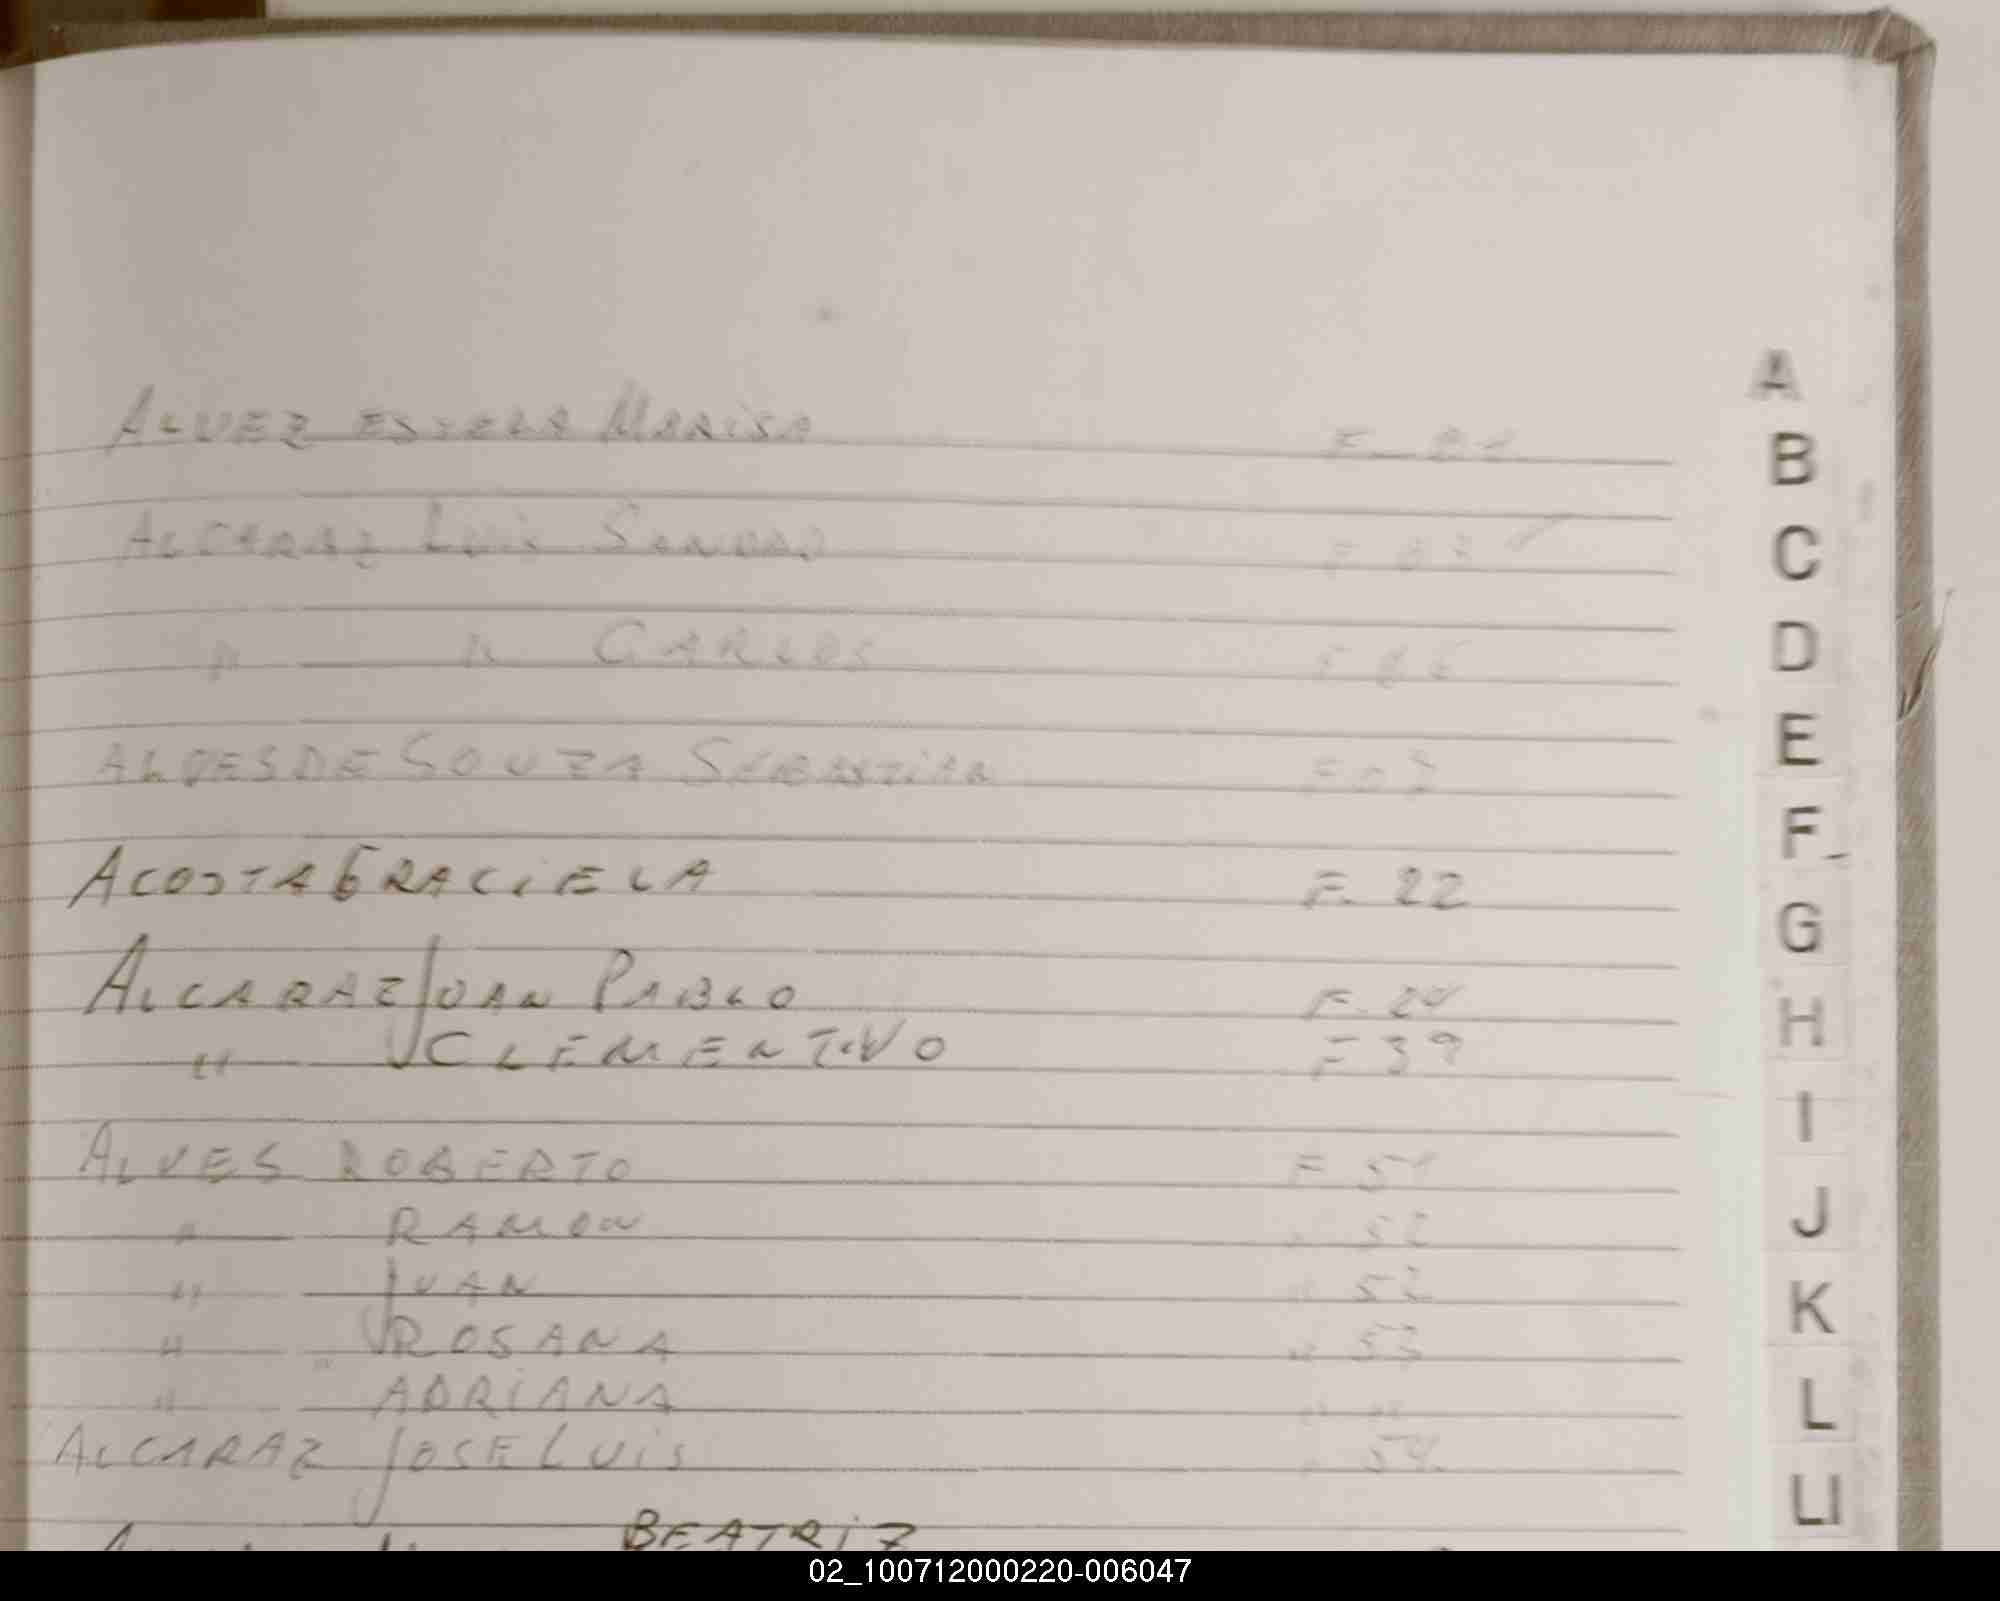 ALVEZ ESTELA MARISA F. 01
ALCARAZ LUIS SANDRO F 03
" " CARLOS F 06
ALVES DE SOUZA SEBASTIAN F 07
ACOSTA GRACIELA F. 22
ALCARAZ JUAN PABLO F. 24
" CLEMENTIVO F 39
ALVES ROBERTO F 51
" RAMON " 52
" JUAN " 52
" ROSANA " 53
" ADRIANA " "
ALCARAZ JOSE LUIS " 54
BEATRIZ
A
B
C
D
E
F
G
H
I
J
K
L
LL
02_100712000220-006047